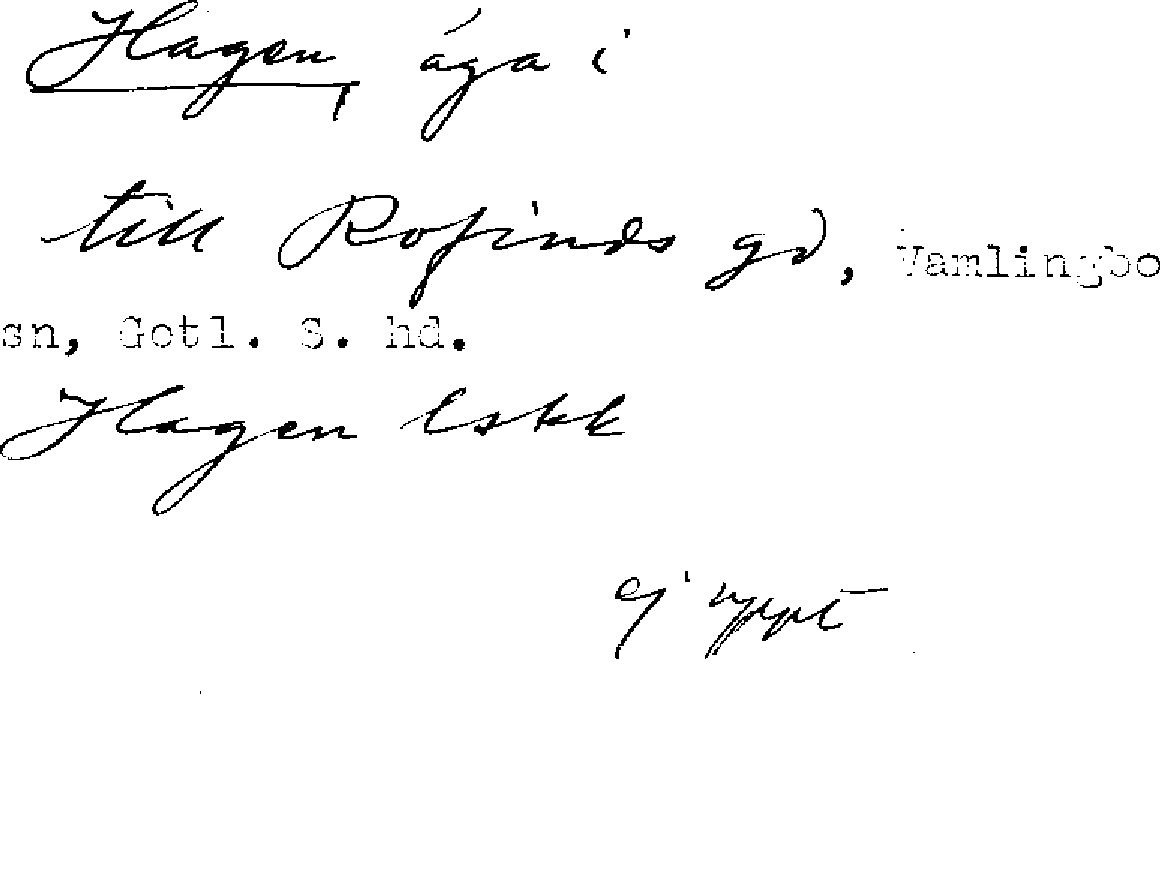 Hagen, äga i
till Rofinds gd, Vamlingbo
sn, Gotl. S. hd.
Hagen lskk
ej uppt